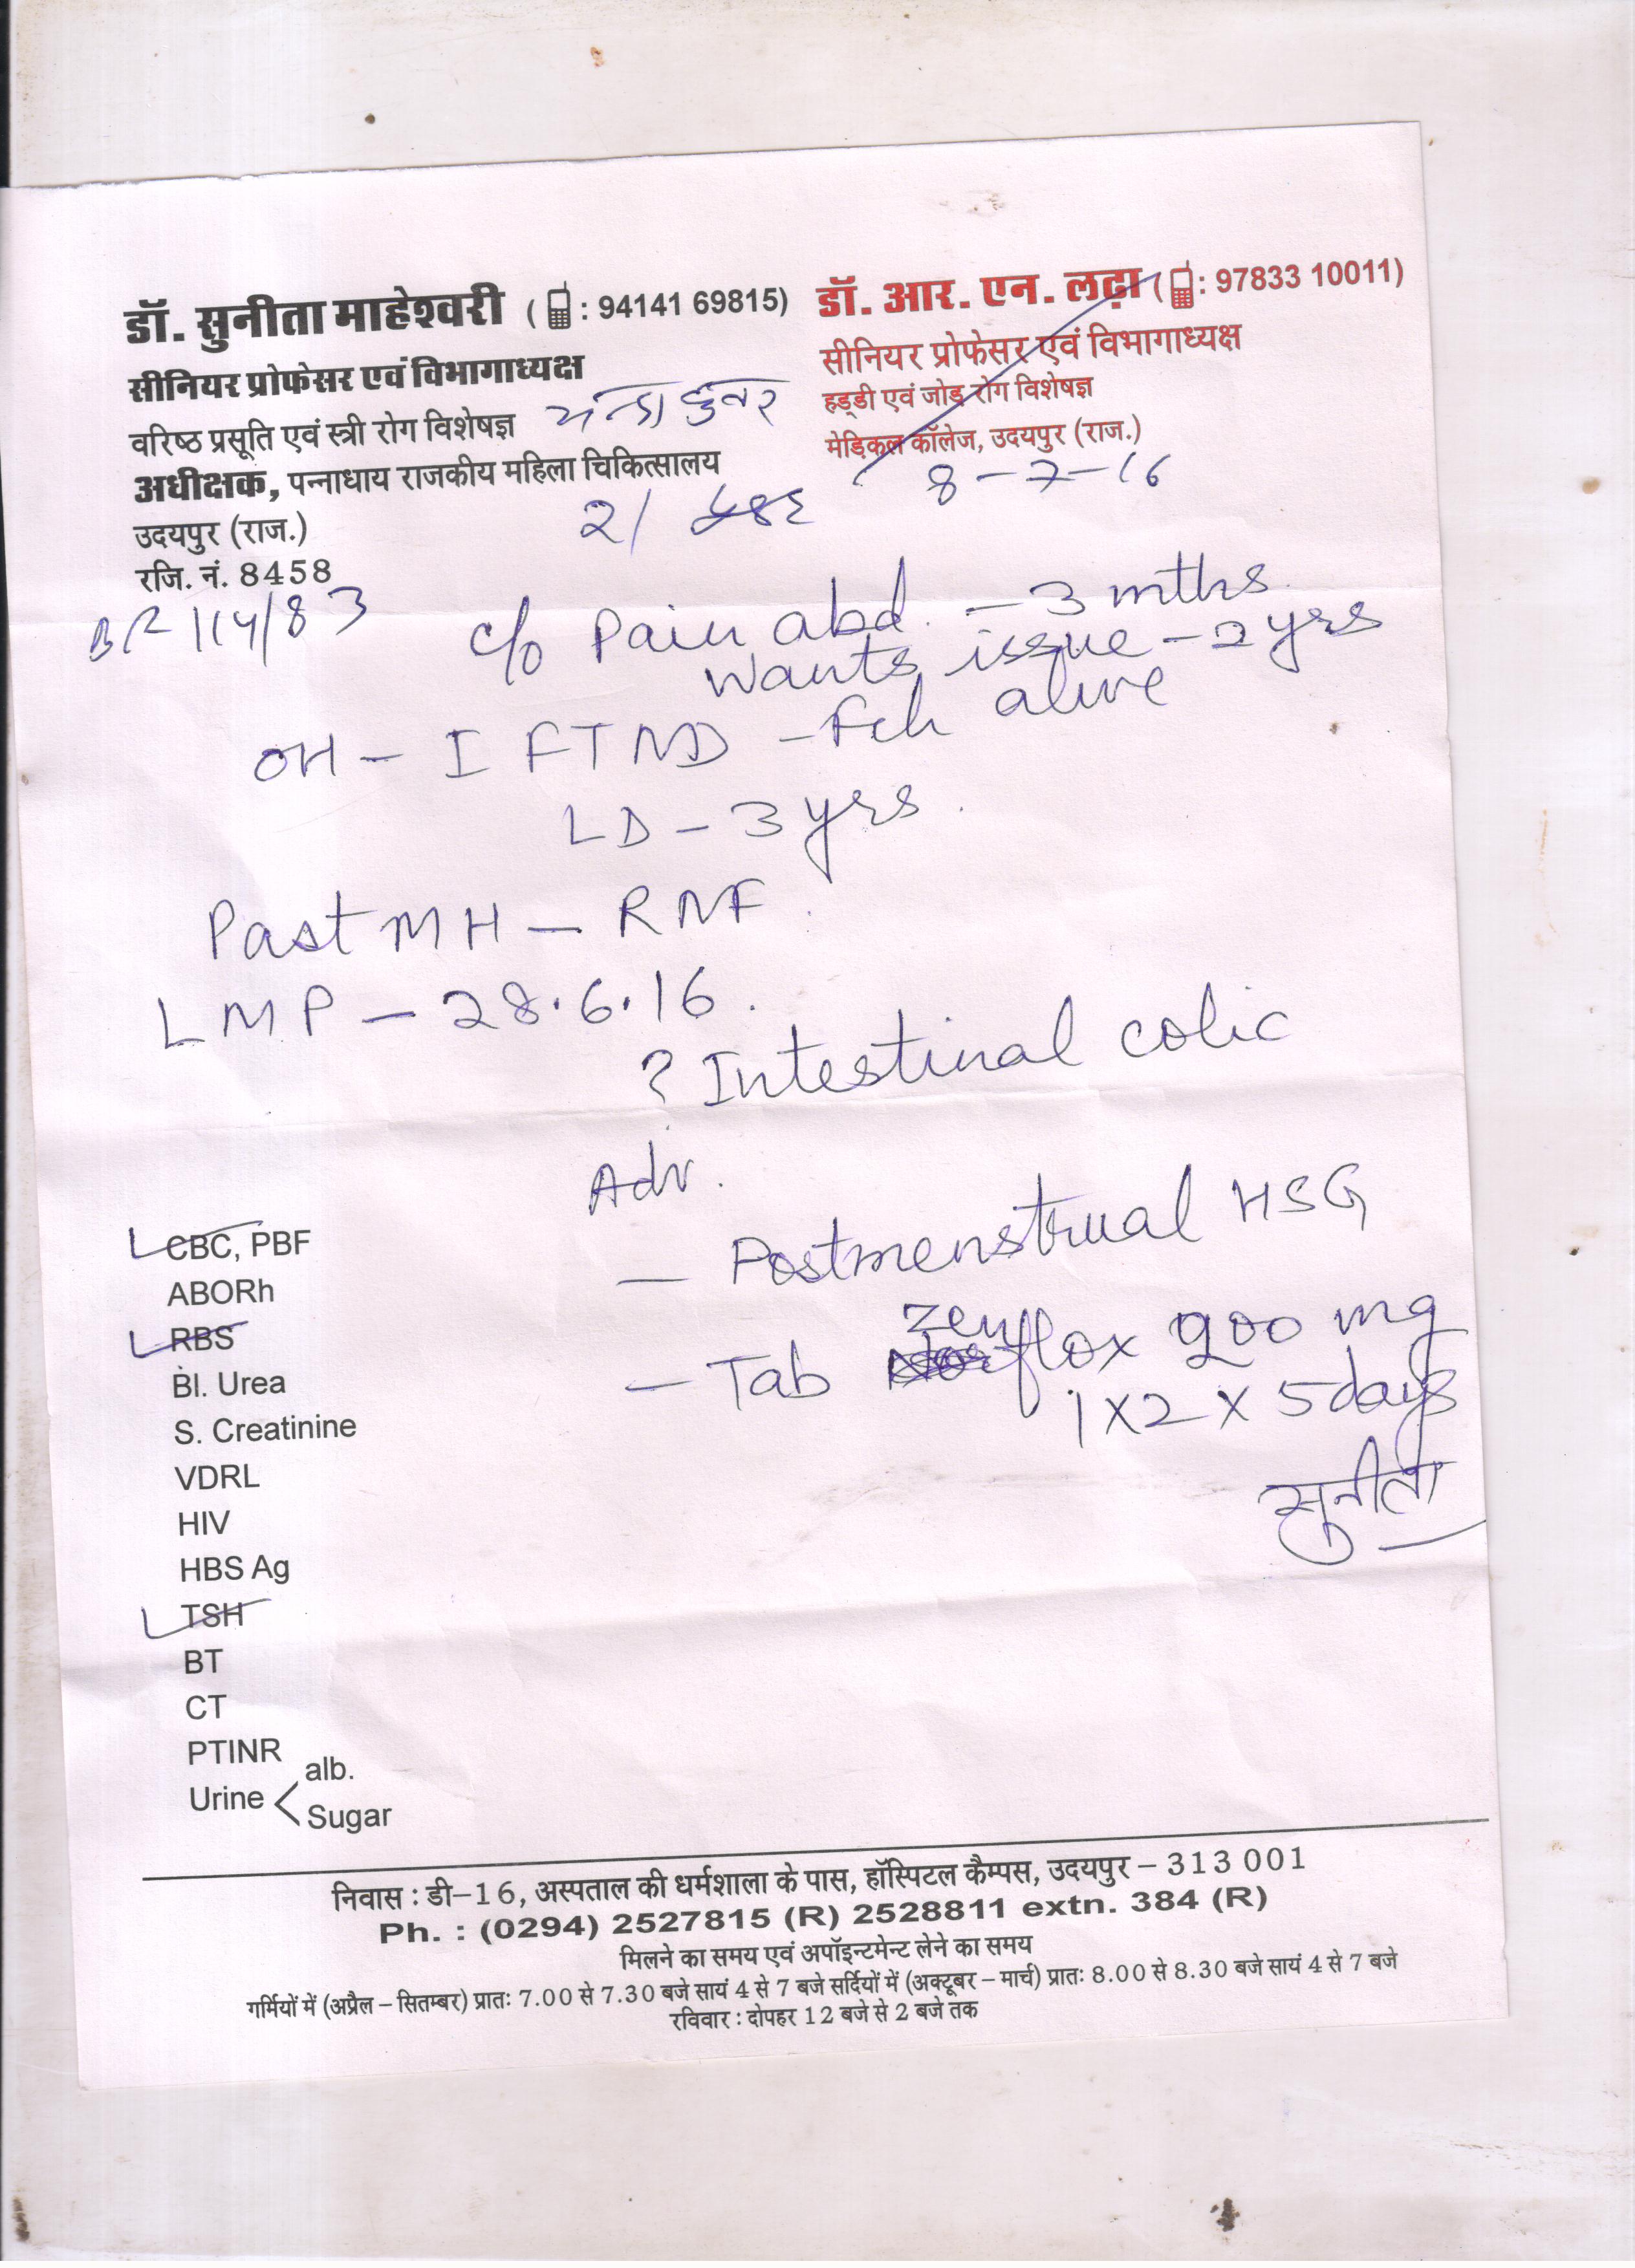 डॉ. सुनीता माहेश्वरी ( : 94141 69815)
सीनियर प्रोफेसर एवं विभागाध्यक्ष
वरिष्ठ प्रसूति एवं स्त्री रोग विशेषज्ञ
अधीक्षक, पन्नाधाय राजकीय महिला चिकित्सालय
उदयपुर (राज.)
रजि. नं. 8458
डॉ. आर. एन. लढ़ा ( : 97833 10011)
सीनियर प्रोफेसर एवं विभागाध्यक्ष
हड्डी एवं जोड़ रोग विशेषज्ञ
मेडिकल कॉलेज, उदयपुर (राज.)
8-7-16
114/83
c/o Pain abd. - 3 mths
wants issue - 2 yrs
OH - I FTND - Fch alive
LD - 3 yrs.
Past MH - RNF
LMP - 28.6.16.
? Intestinal colic
Adv.
- Postmenstrual HSG
- Tab Zenflox 200 mg
1 x 2 x 5 days
सुनीता
CBC, PBF
ABORh
RBS
Bl. Urea
S. Creatinine
VDRL
HIV
HBS Ag
TSH
BT
CT
PTINR
Urine < alb.
Sugar
निवास : डी-16, अस्पताल की धर्मशाला के पास, हॉस्पिटल कैम्पस, उदयपुर – 313 001
Ph. : (0294) 2527815 (R) 2528811 extn. 384 (R)
मिलने का समय एवं अपॉइन्टमेन्ट लेने का समय
गर्मियों में (अप्रैल – सितम्बर) प्रातः 7.00 से 7.30 बजे सायं 4 से 7 बजे सर्दियों में (अक्टूबर – मार्च) प्रातः 8.00 से 8.30 बजे सायं 4 से 7 बजे
रविवार : दोपहर 12 बजे से 2 बजे तक